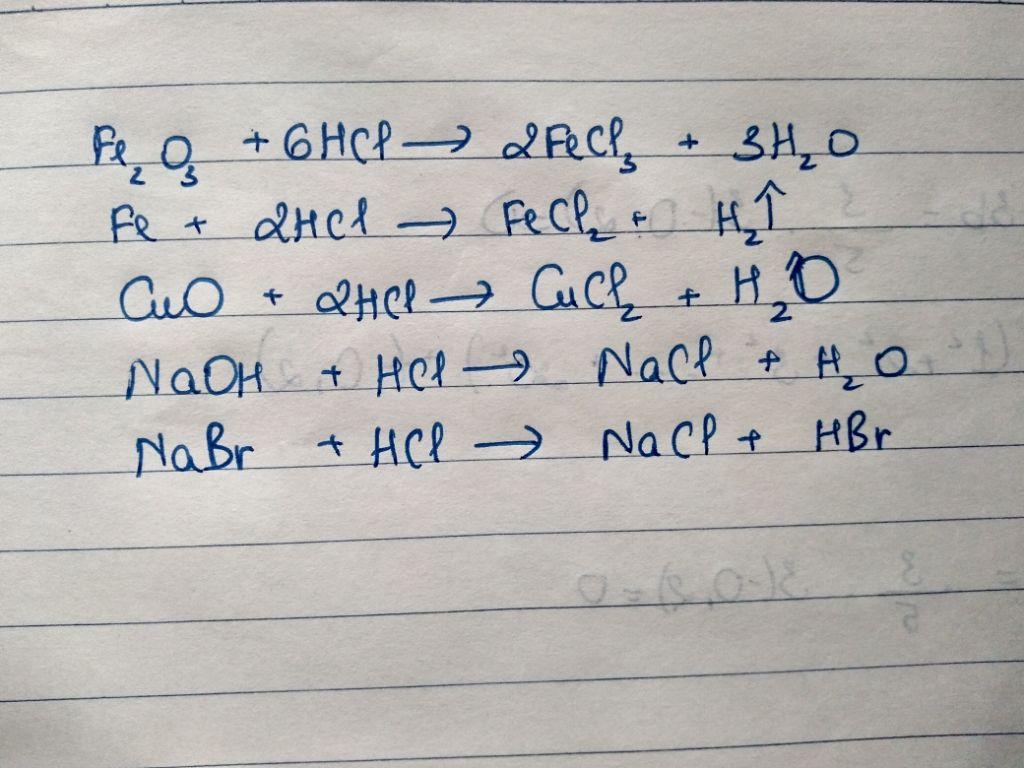 Fe₂O₃ + 6HCl → 2FeCl₃ + 3H₂O
Fe + 2HCl → FeCl₂ + H₂↑
CuO + 2HCl → CuCl₂ + H₂O
NaOH + HCl → NaCl + H₂O
NaBr + HCl → NaCl + HBr